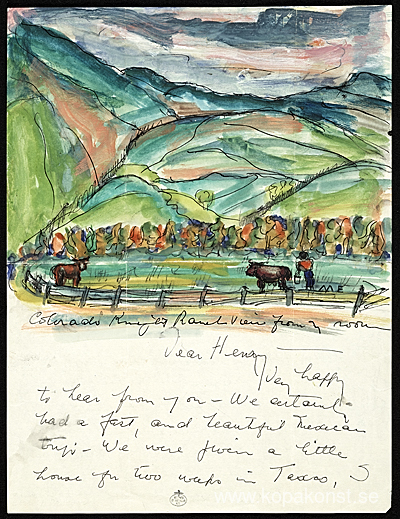 Colorado Knight Ranch View from my room
Dear Henry —
Very happy
to hear from you — We certainly
had a fast, and beautiful Mexican
trip — We were given a little
house for two weeks in Texas,
www.kopakonst.se